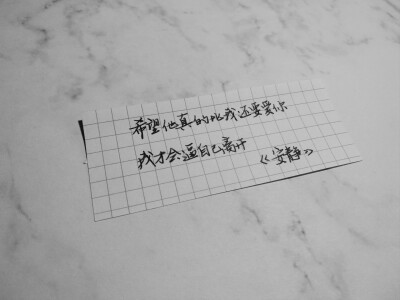 希望他真的比我还要爱你
我才会逼自己离开
《安静》